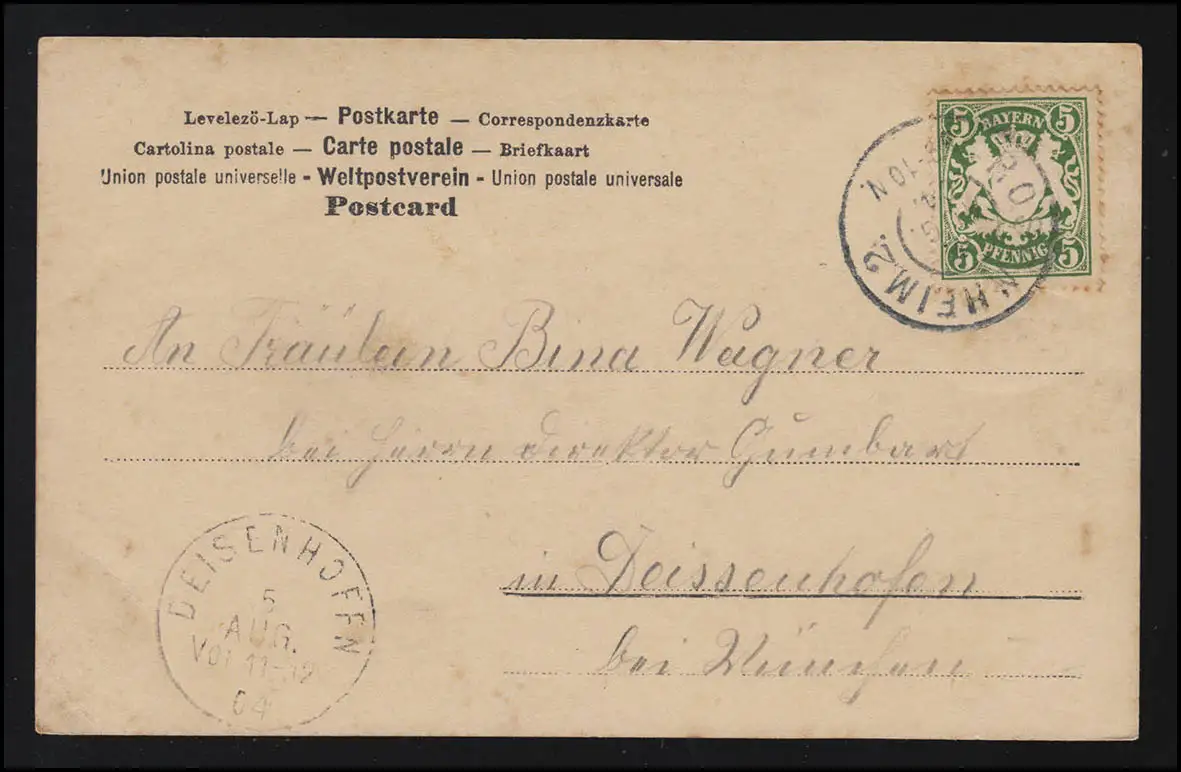 Levelezö-Lap — Postkarte — Correspondenzkarte
Cartolina postale — Carte postale — Briefkaart
Union postale universelle - Weltpostverein - Union postale universale
Postcard
5 BAYERN 5
5 PFENNIG 5
HEIM 2.
An Fräulein Bina Wagner
bei Herrn Direktor Gumbart
in Deissenhofen
bei München
DEISENHOFFN
5
AUG.
Vor 11-12
04